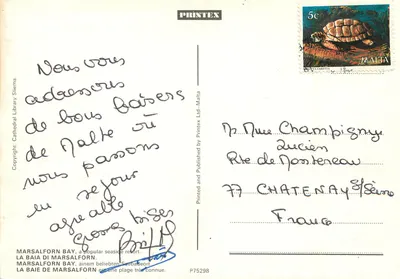 PRINTEX
5c
MALTA
Nous vous
adressons
de bons baisers
de Malte où
nous passons
un séjour
agréable
Grosses bises
Copyright: Cathedral Library Sliema
Printed and Published by Printex Ltd - Malta
M. Mme Champigny
Lucien
Rte de Montereau
77 CHATENAY s/Seine
France
MARSALFORN BAY, a popular seaside resort.
LA BAIA DI MARSALFORN
MARSALFORN BAY, einem beliebten
LA BAIE DE MARSALFORN une plage très connue.
P75298